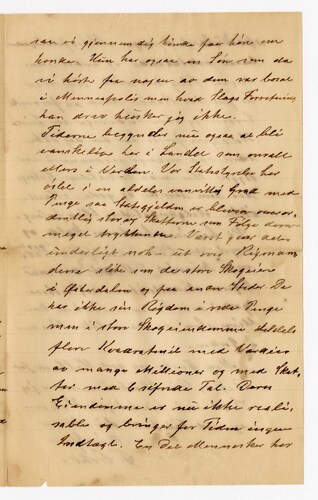 saa vi gjennem dig kunde faa høre om
henke. Hun har ogsaa en Søn som da
vi hørte fra nogen av dem var bosat
i Menneapolis men hvad Slags Forretning
han drev husker jeg ikke.
Tiderne begynder nu ogsaa at bli
vanskelige her i Landet som overalt
ellers i Verden. Vor Statsstyrelse har
ødslet i en aldeles vanvittig Grad med
Penge saa Statsgjelden er blevet overor-
dentlig stor og Skatterne som Følge derav
meget trykkende. Værst gaar dette
underligt nok ut over Rigmæn
dene slike som de store Skogeier
i Østerdalen og paa andre Steder De
har ikke sin Rigdom i rede Penge
men i store Skogeiendomme
flere Kvadratmil med Værdier
av mange Millioner og med Skat-
ter med 6 sifrede Tal. Deres
Eiendomme er nu ikke reali-
sable og bringer for Tiden ingen
Indtægt. En Del Mennesker har